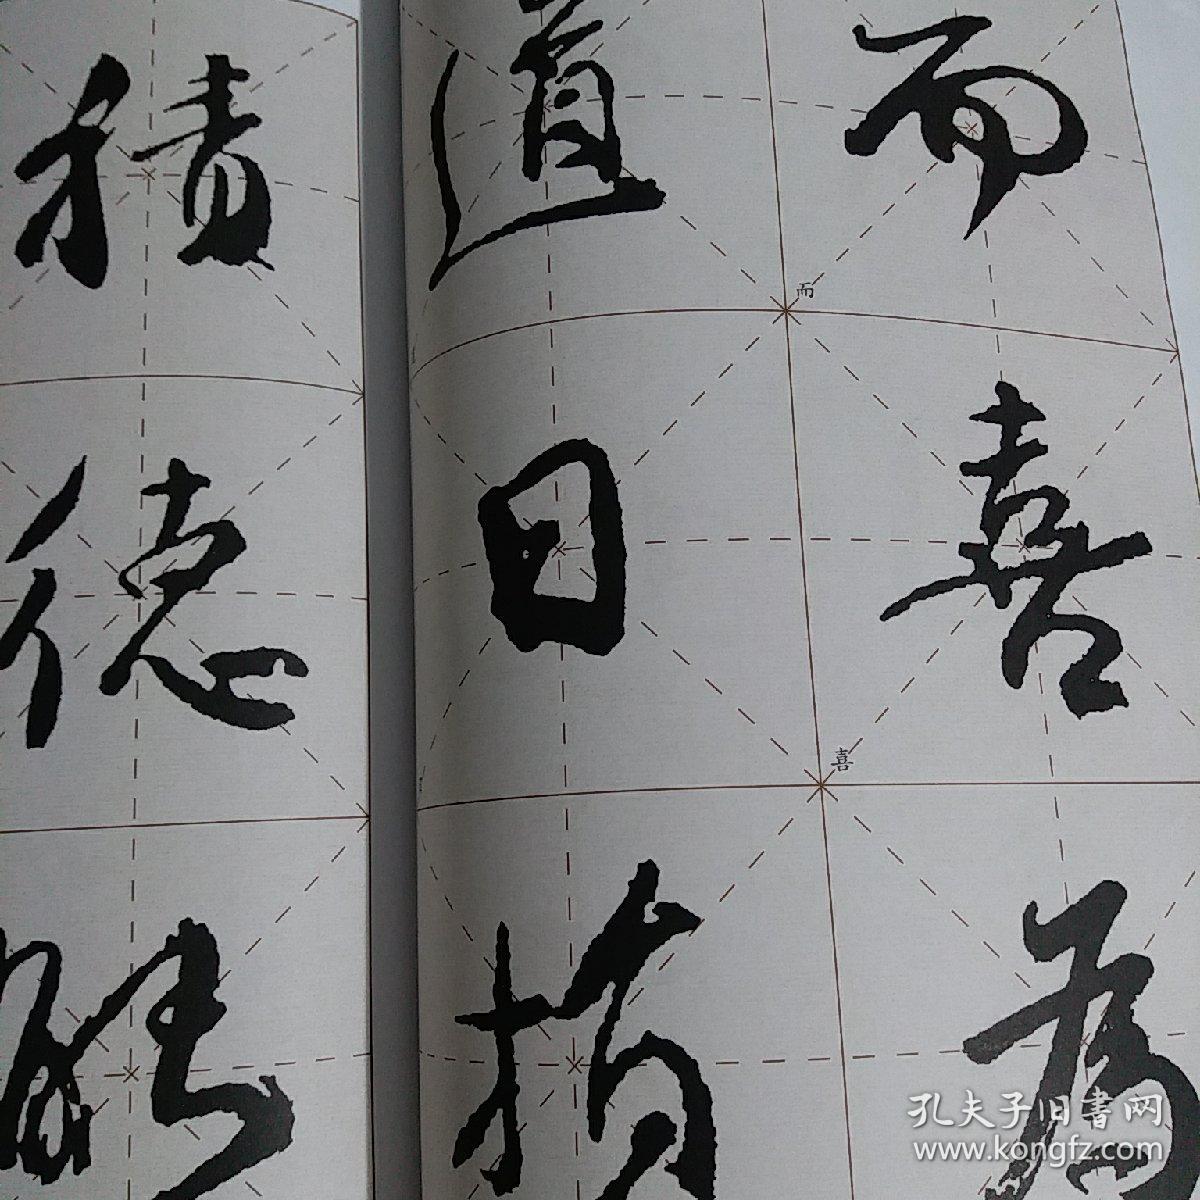 而喜為
而
喜
道日損
積德能
孔夫子旧書网
www.kongfz.com